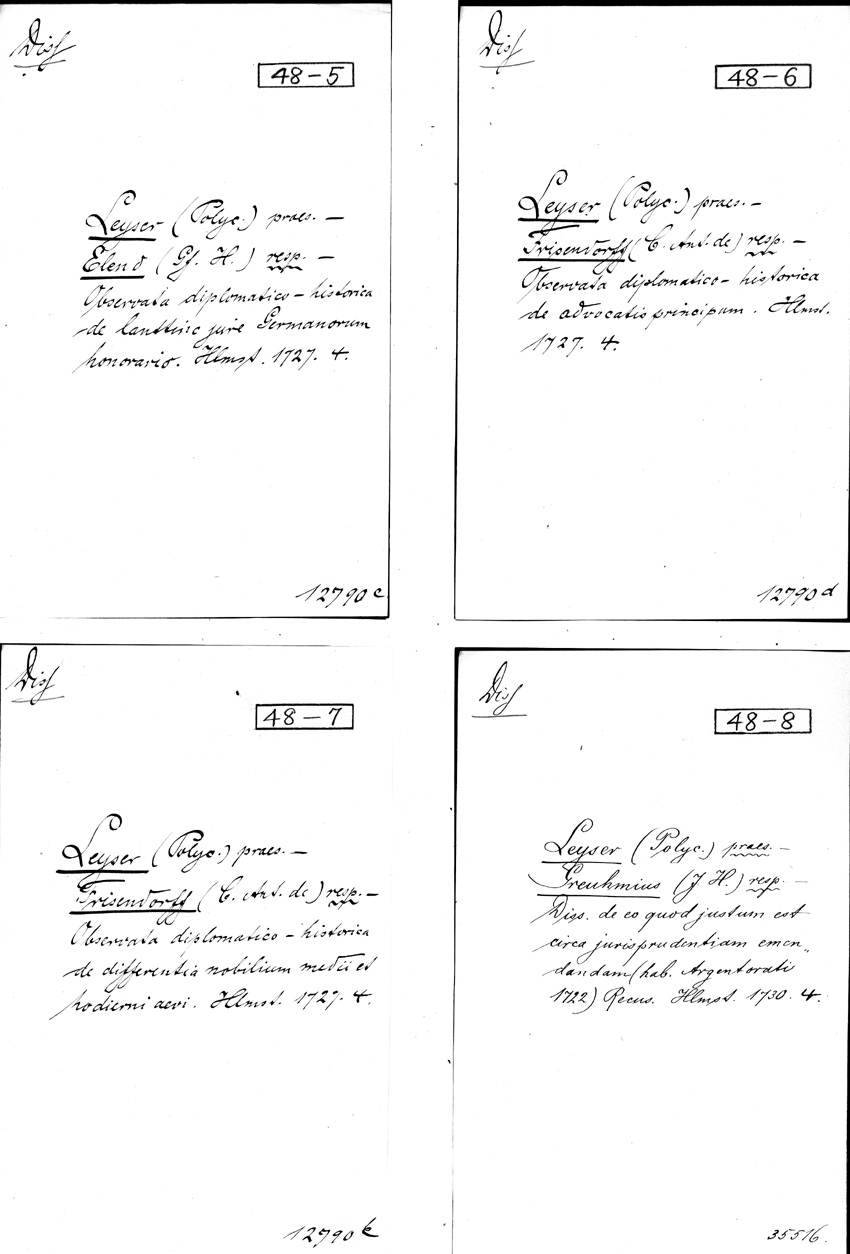 Diss
48-5
Leyser (Polyc.) praes. —
Elend (Gf. H.) resp. —
Observata diplomatico-historica
de lanttinc jure Germanorum
honorario. Hlmst. 1727. 4.
12790 c
Diss
48-6
Leyser (Polyc.) praes. —
Frisendorff (C. Ant. de) resp. —
Observata diplomatico-historica
de advocatis principum. Hlmst.
1727. 4.
12790 d
Diss
48-7
Leyser (Polyc.) praes. —
Frisendorff (C. Ant. de) resp. —
Observata diplomatico-historica
de differentia nobilium medii et
hodierni aevi. Hlmst. 1727. 4.
12790
Diss
48-8
Leyser (Polyc.) praes. —
Greuhmius (J H.) resp. —
Diss. de eo quod justum est
circa jurisprudentiam emen„
dandam (hab. Argentorati
1722) Recus. Hlmst. 1730. 4.
35516.